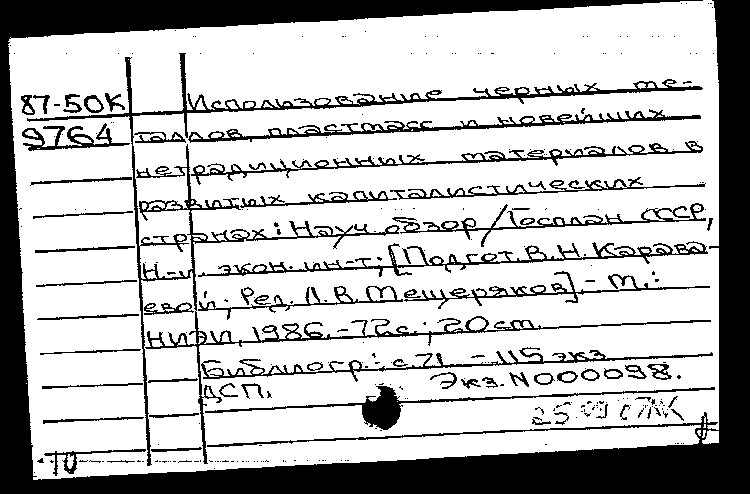 87-50К Использование черных ме-
9764 таллов, пластмасс и новейших
нетрадиционных материалов в
развитых капиталистических
странах: Науч. обзор / Госплан СССР,
Н.-и. экон. ин-т; [Подгот. В. Н. Карава-
евой; Ред. Л. В. Мещеряков]. - М.:
НИЭИ, 1986. - 72 с.; 20 см.
Библиогр.: с. 71 - 115 экз
ДСП. Экз. N 000098.
10